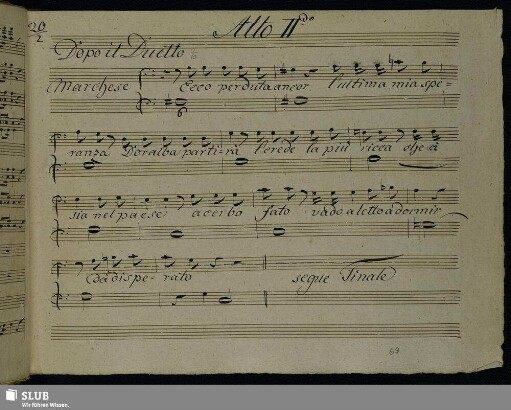 20
2
Atto II do
Dopo il Duetto
Marchese Ecco perduta ancor l'ultima mia spe-
6
ranza Doralba partirà l'erede la piu ricca che vi
sia nel paese acerbo fato vado a letto a dormir
da dispe-rato segue Finale
69
SLUB
Wir führen Wissen.